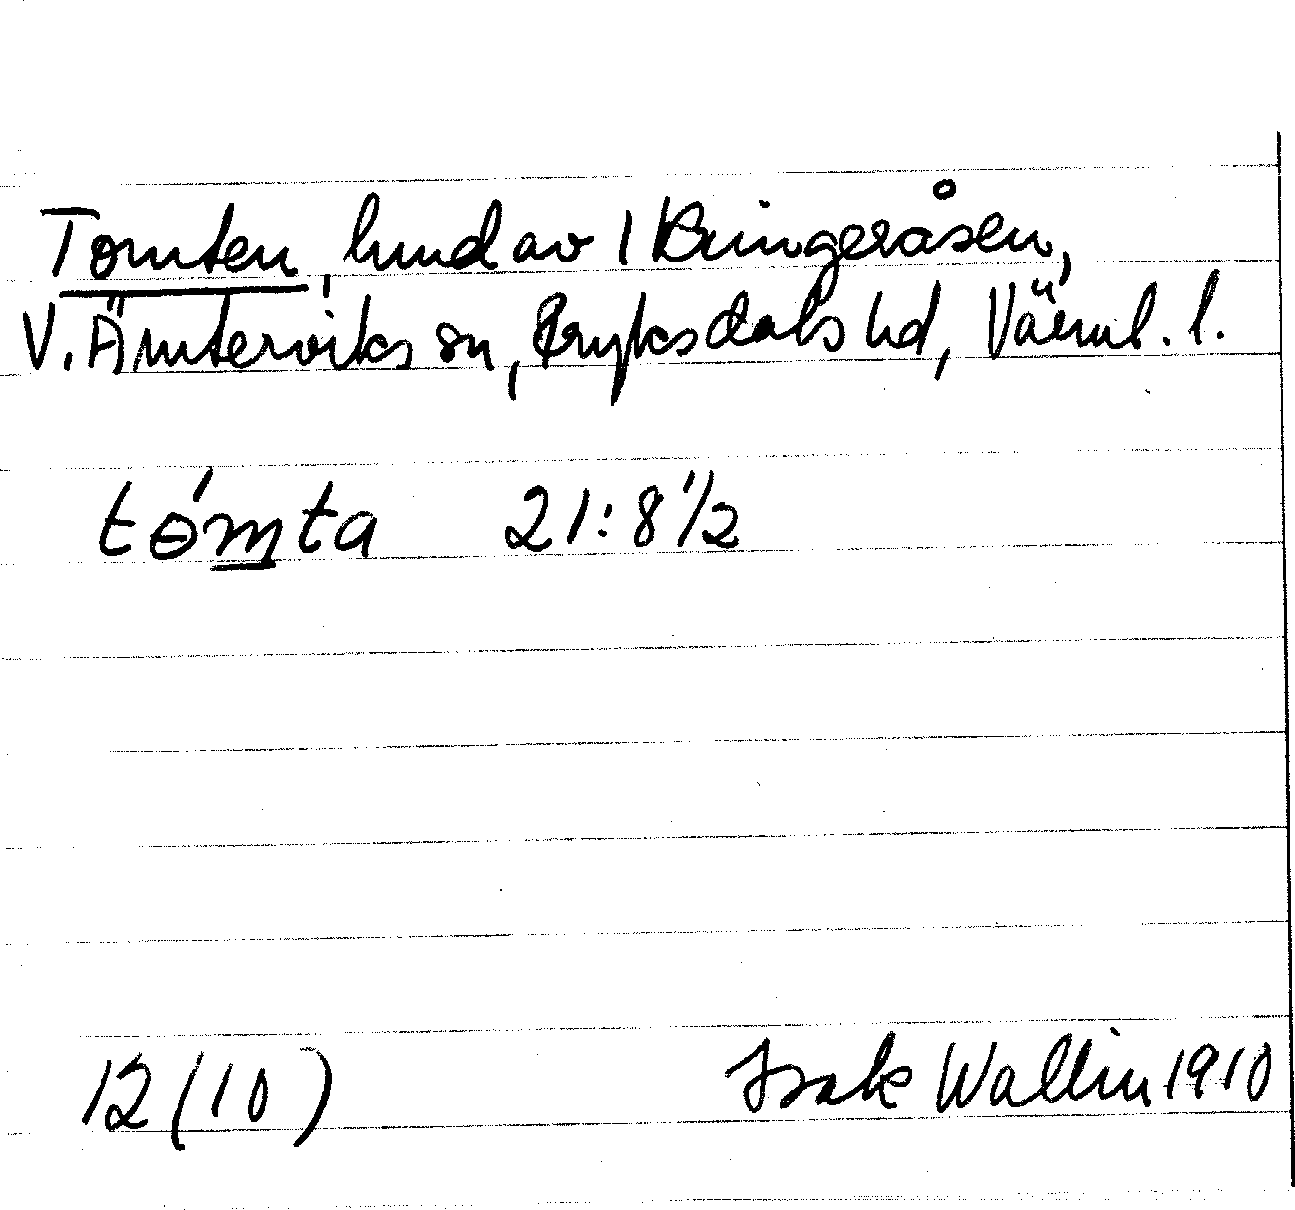 Tomten, hmd av 1 Bringeråsen,
V. Ämterviks sn, Fryksdals hd, Värml. l.
tɵ́mta 21:8 1/2
12 (10) Isak Wallin 1910